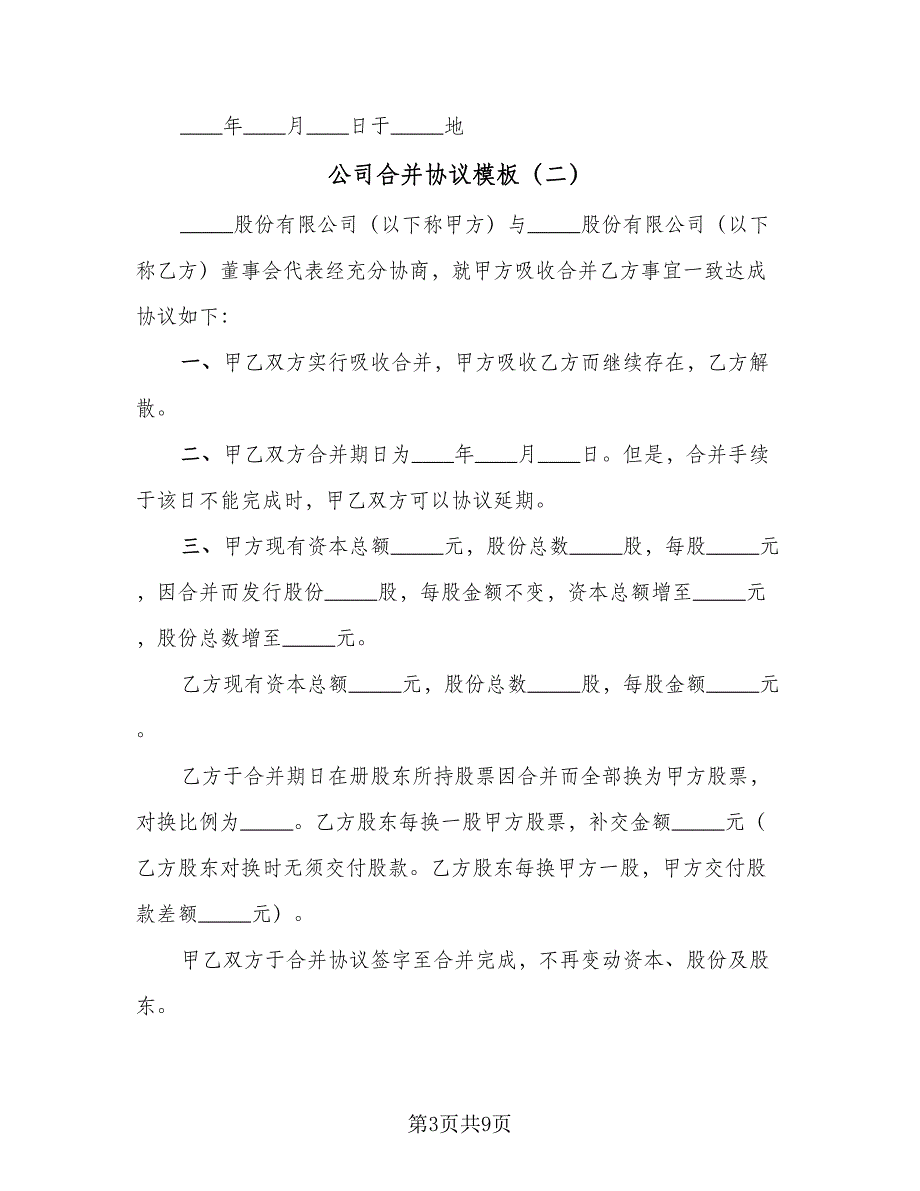 ____年____月____日于_____地
公司合并协议模板（二）
_____股份有限公司（以下称甲方）与_____股份有限公司（以下
称乙方）董事会代表经充分协商，就甲方吸收合并乙方事宜一致达成
协议如下：
一、甲乙双方实行吸收合并，甲方吸收乙方而继续存在，乙方解
散。
二、甲乙双方合并期日为____年____月____日。但是，合并手续
于该日不能完成时，甲乙双方可以协议延期。
三、甲方现有资本总额_____元，股份总数_____股，每股_____元
，因合并而发行股份_____股，每股金额不变，资本总额增至_____元
，股份总数增至_____元。
乙方现有资本总额_____元，股份总数_____股，每股金额_____元
。
乙方于合并期日在册股东所持股票因合并而全部换为甲方股票，
对换比例为_____。乙方股东每换一股甲方股票，补交金额_____元（
乙方股东对换时无须交付股款。乙方股东每换甲方一股，甲方交付股
款差额_____元）。
甲乙双方于合并协议签字至合并完成，不再变动资本、股份及股
东。
第3页共9页